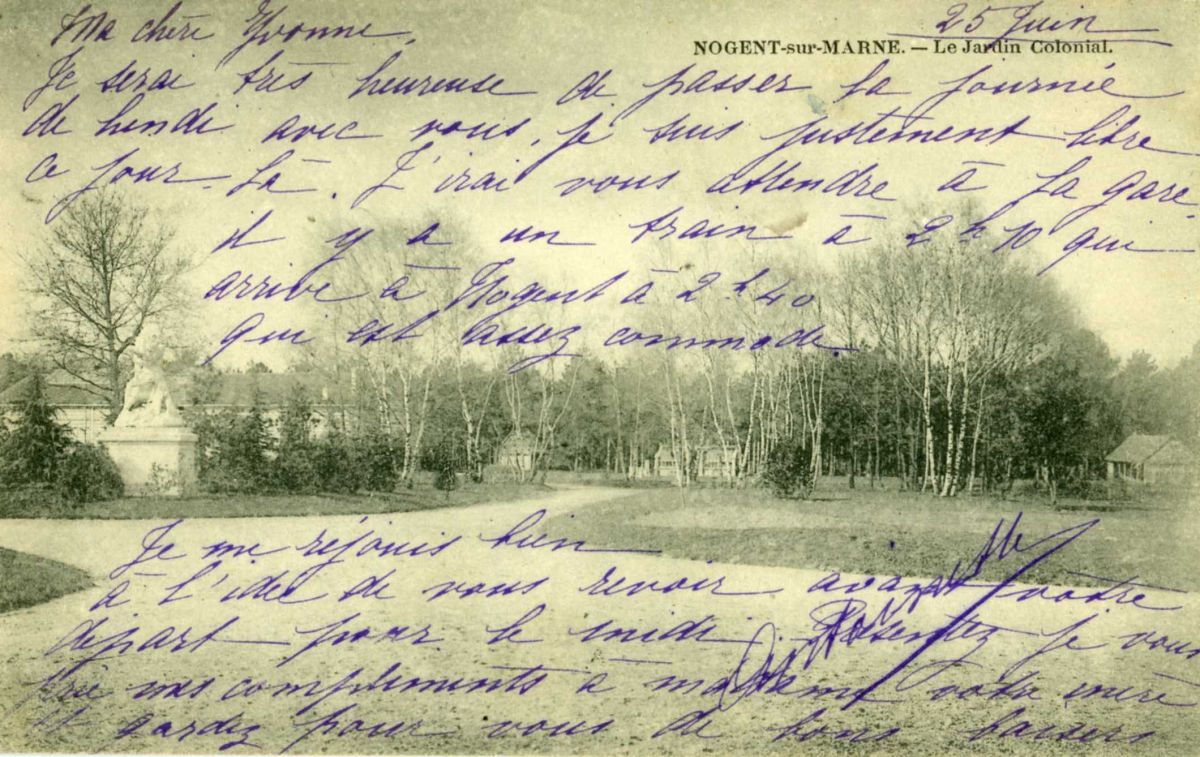 25 Juin
NOGENT-sur-MARNE. — Le Jardin Colonial.
Ma chère Yvonne,
Je serai très heureuse de passer la journée
de lundi avec vous, je suis justement libre
ce jour-là. J'irai vous attendre à la gare
il y a un train à 2h10 qui
arrive à Nogent à 2h40
qui est assez commode.
Je me réjouis bien
à l'idée de vous revoir avant votre
départ pour le midi. Présentez je vous
prie mes compliments à madame votre mère
et gardez pour vous de bons baisers